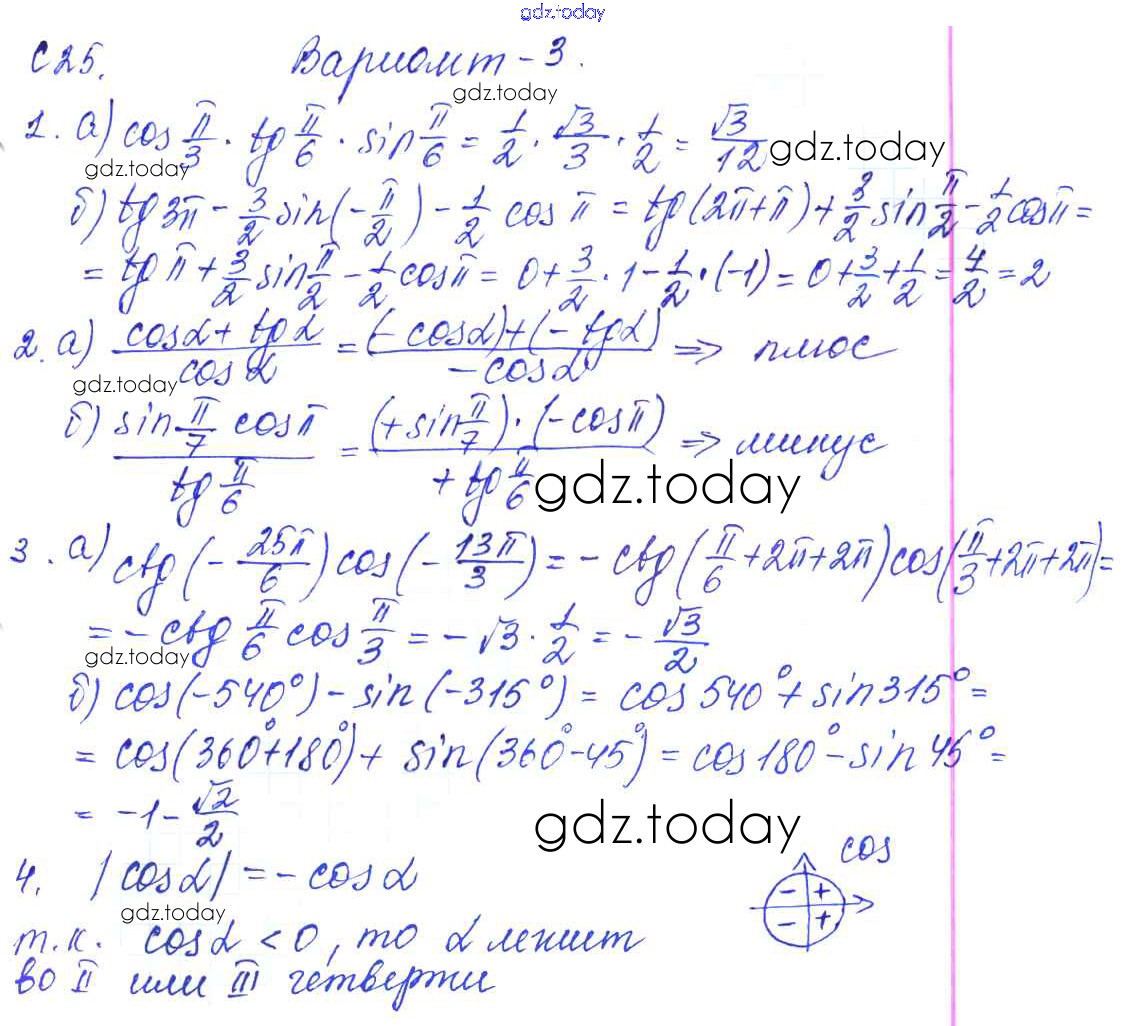 gdz.today
С25. Вариант - 3.
gdz.today
1. а) cos π/3 · tg π/6 · sin π/6 = 1/2 · √3/3 · 1/2 = √3/12
gdz.today
gdz.today
б) tg 3π - 3/2 sin(-π/2) - 1/2 cos π = tg(2π+π) + 3/2 sin π/2 - 1/2 cos π =
= tg π + 3/2 sin π/2 - 1/2 cos π = 0 + 3/2 · 1 - 1/2 · (-1) = 0 + 3/2 + 1/2 = 4/2 = 2
2. а) (cos α + tg α)/(cos α) = ((- cos α) + (- tg α))/(- cos α) => плюс
gdz.today
б) (sin π/7 cos π)/(tg π/6) = ((+ sin π/7) · (- cos π))/(+ tg π/6) => минус
gdz.today
3. а) ctg(- 25π/6) cos(- 13π/3) = - ctg(π/6 + 2π + 2π) cos(π/3 + 2π + 2π) =
= - ctg π/6 cos π/3 = - √3 · 1/2 = - √3/2
gdz.today
б) cos(-540°) - sin(-315°) = cos 540° + sin 315° =
= cos(360°+180°) + sin(360°-45°) = cos 180° - sin 45° =
= -1 - √2/2
gdz.today
4. |cos α| = - cos α
cos
- +
- +
gdz.today
т.к. cos α < 0, то α лежит
во II или III четверти